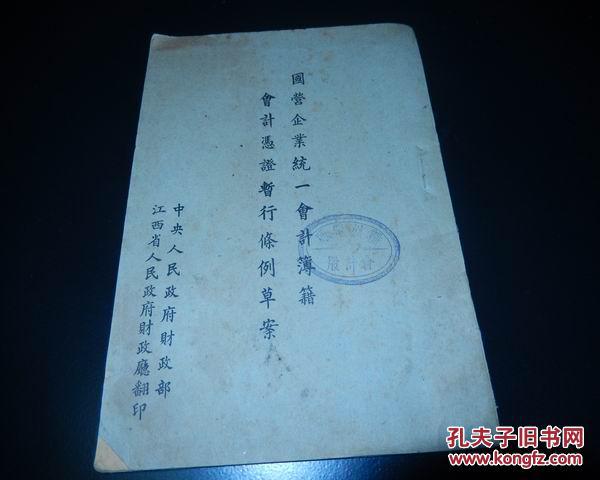 國營企業統一會計簿籍
會計憑證暫行條例草案
中央人民政府財政部
江西省人民政府財政廳翻印
會計股
孔夫子旧书网
www.kongfz.com